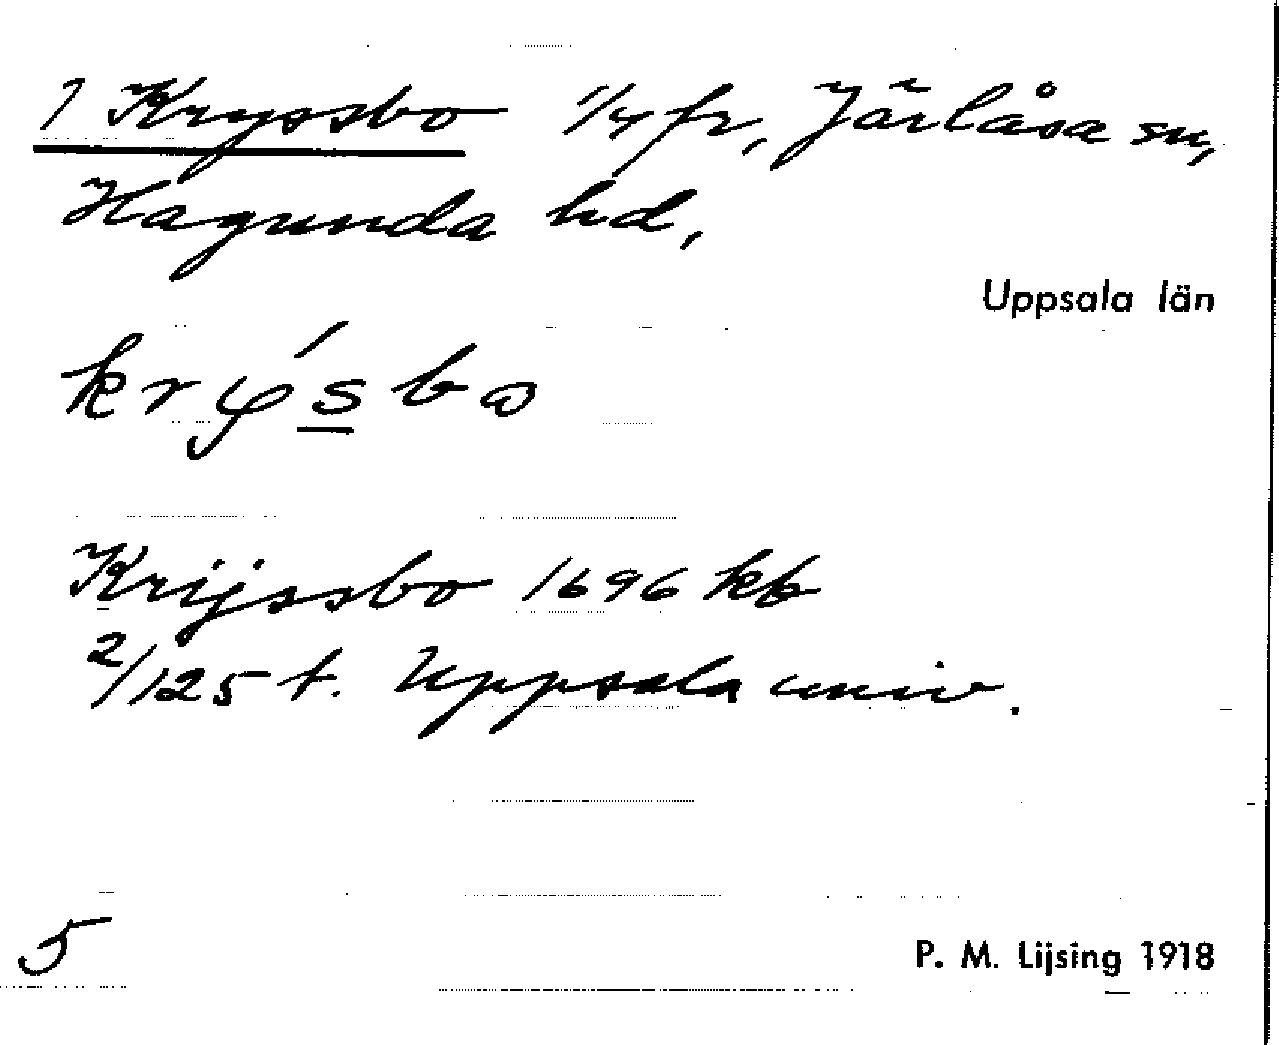 1 Kryssbo 1/4 fr, Järlåsa sn,
Hagunda hd,
Uppsala län
krýsbo
Krijssbo 1696 kb
2/125 t. Uppsala univ.
5
P. M. Lijsing 1918